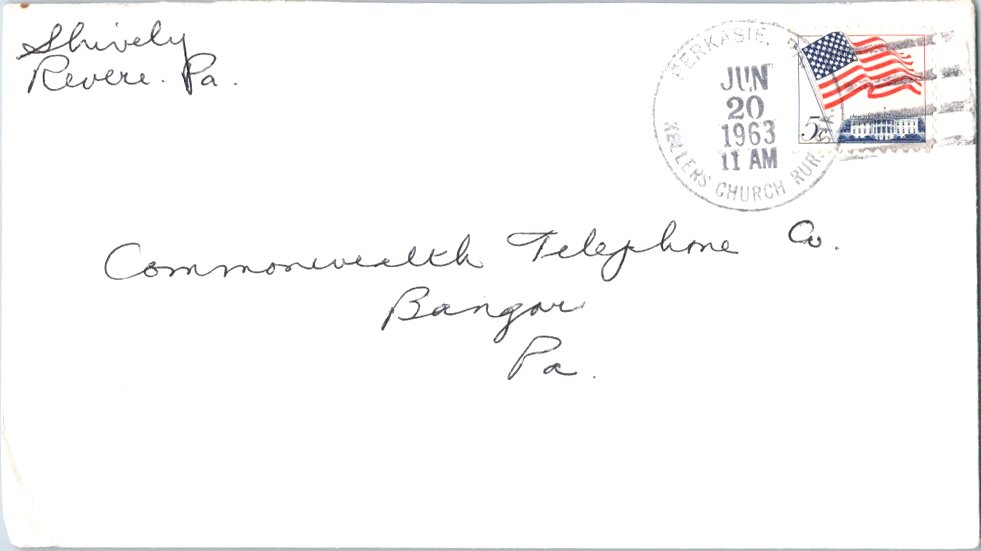 Shively
Revere. Pa.
PERKASIE, PA.
JUN
20
1963
11 AM
KELLERS CHURCH RUR. STA.
5c
Commonwealth Telephone Co.
Bangor
Pa.